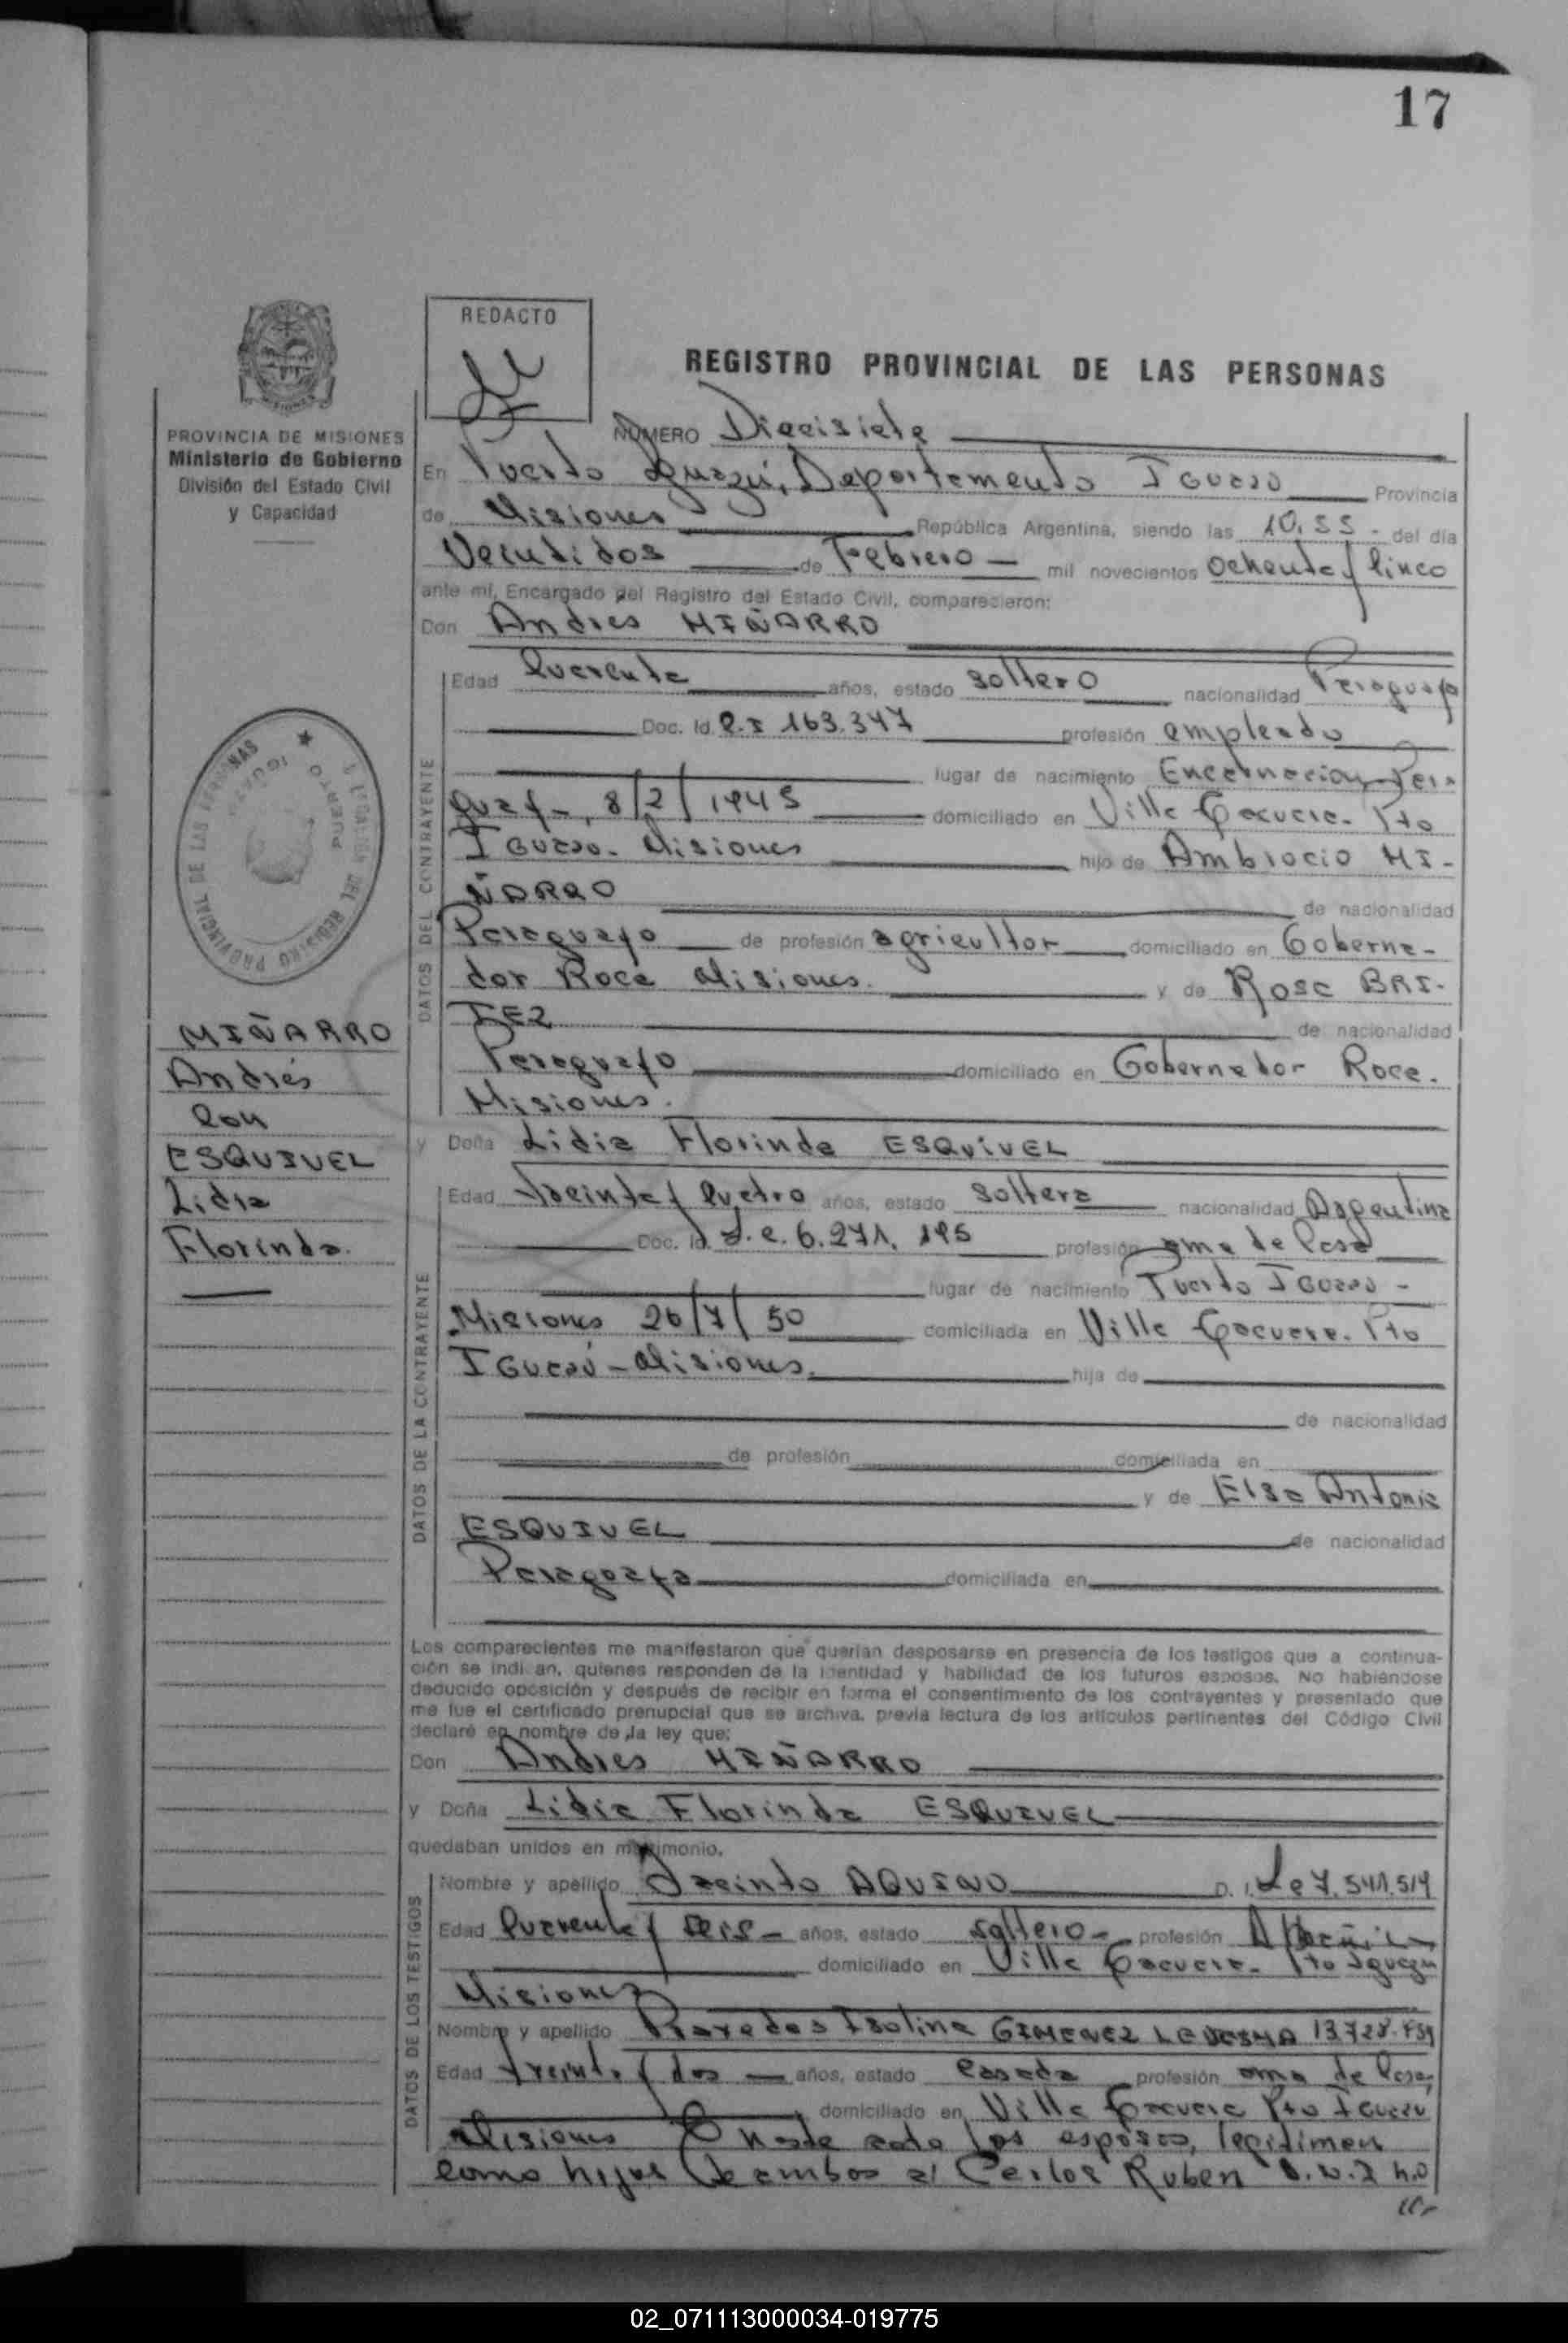 17
REDACTO
REGISTRO PROVINCIAL DE LAS PERSONAS
PROVINCIA DE MISIONES
Ministerio de Gobierno
División del Estado Civil
y Capacidad
NUMERO Diecisiete
En Puerto Iguazú, Departamento IGUAZU Provincia
de Misiones República Argentina, siendo las 10,55 - del día
Veintidos de Febrero mil novecientos Ochenta y Cinco
ante mí, Encargado del Registro del Estado Civil, comparecieron:
Don Andres MIÑARRO
DATOS DEL CONTRAYENTE
Edad Cuarenta años, estado soltero nacionalidad Paraguayo
Doc. Id. C.I 163.347 profesión empleado
lugar de nacimiento Encarnacion Para-
guay-, 8/2/1945 domiciliado en Villa Cacuera. Pto
IGUAZU. Misiones hijo de Ambrocio MI-
ÑARRO de nacionalidad
Paraguayo de profesión agricultor domiciliado en Goberna-
dor Roca Misiones. y de Rosa BRI-
TEZ de nacionalidad
Paraguayo domiciliado en Gobernador Roca.
Misiones.
MIÑARRO
Andrés
Con
ESQUIVEL
Lidia
Florinda.
y Doña Lidia Florinda ESQUIVEL
DATOS DE LA CONTRAYENTE
Edad Treinta y Cuatro años, estado soltera nacionalidad Argentina
Doc. Id. L.C. 6.271.195 profesión ama de Casa
lugar de nacimiento Puerto IGUAZU -
Misiones 26/7/50 domiciliada en Villa Cacuera. Pto
IGUAZÚ - Misiones. hija de
de nacionalidad
de profesión domiciliada en
y de Elsa Antonia
ESQUIVEL de nacionalidad
Paraguaya domiciliada en
Los comparecientes me manifestaron que querían desposarse en presencia de los testigos que a continua-
ción se indi an, quienes responden de la identidad y habilidad de los futuros esposos. No habiéndose
deducido oposición y después de recibir en forma el consentimiento de los contrayentes y presentado que
me fue el certificado prenupcial que se archiva, previa lectura de los artículos pertinentes del Código Civil
declaré en nombre de la ley que:
Don Andres MIÑARRO
y Doña Lidia Florinda ESQUIVEL
quedaban unidos en matrimonio.
DATOS DE LOS TESTIGOS
Nombre y apellido Jacinto AQUINO D. I. L e 7.541.514
Edad Cuarenta y seis - años, estado soltero - profesión Albañil
domiciliado en Villa Cacuera. Pto Iguazu
Misiones
Nombre y apellido Paredes Isolina GIMENEZ LEDESMA 13.728.
Edad treinta y dos años, estado Casada profesión ama de Casa
domiciliado en Villa Cacuera Pto IGUAZU
Misiones En este acto los esposos, legitiman
como hijos de ambos a: Carlos Ruben
02_071113000034-019775